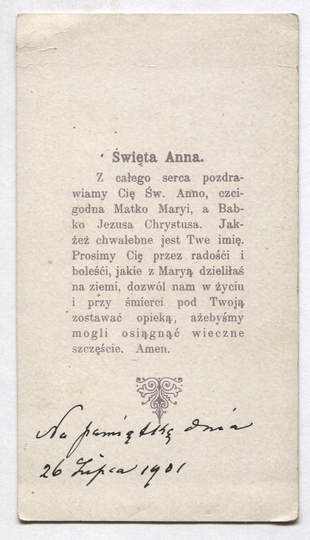 Święta Anna.
Z całego serca pozdra-
wiamy Cię Św. Anno, czci-
godna Matko Maryi, a Bab-
ko Jezusa Chrystusa. Jak-
żeż chwalebne jest Twe imię.
Prosimy Cię przez radośći i
boleśći, jakie z Maryą dzieliłaś
na ziemi, dozwól nam w życiu
i przy śmierci pod Twoją
zostawać opieką, ażebyśmy
mogli osiągnąć wieczne
szczęście. Amen.
Na pamiątkę dnia
26 Lipca 1901